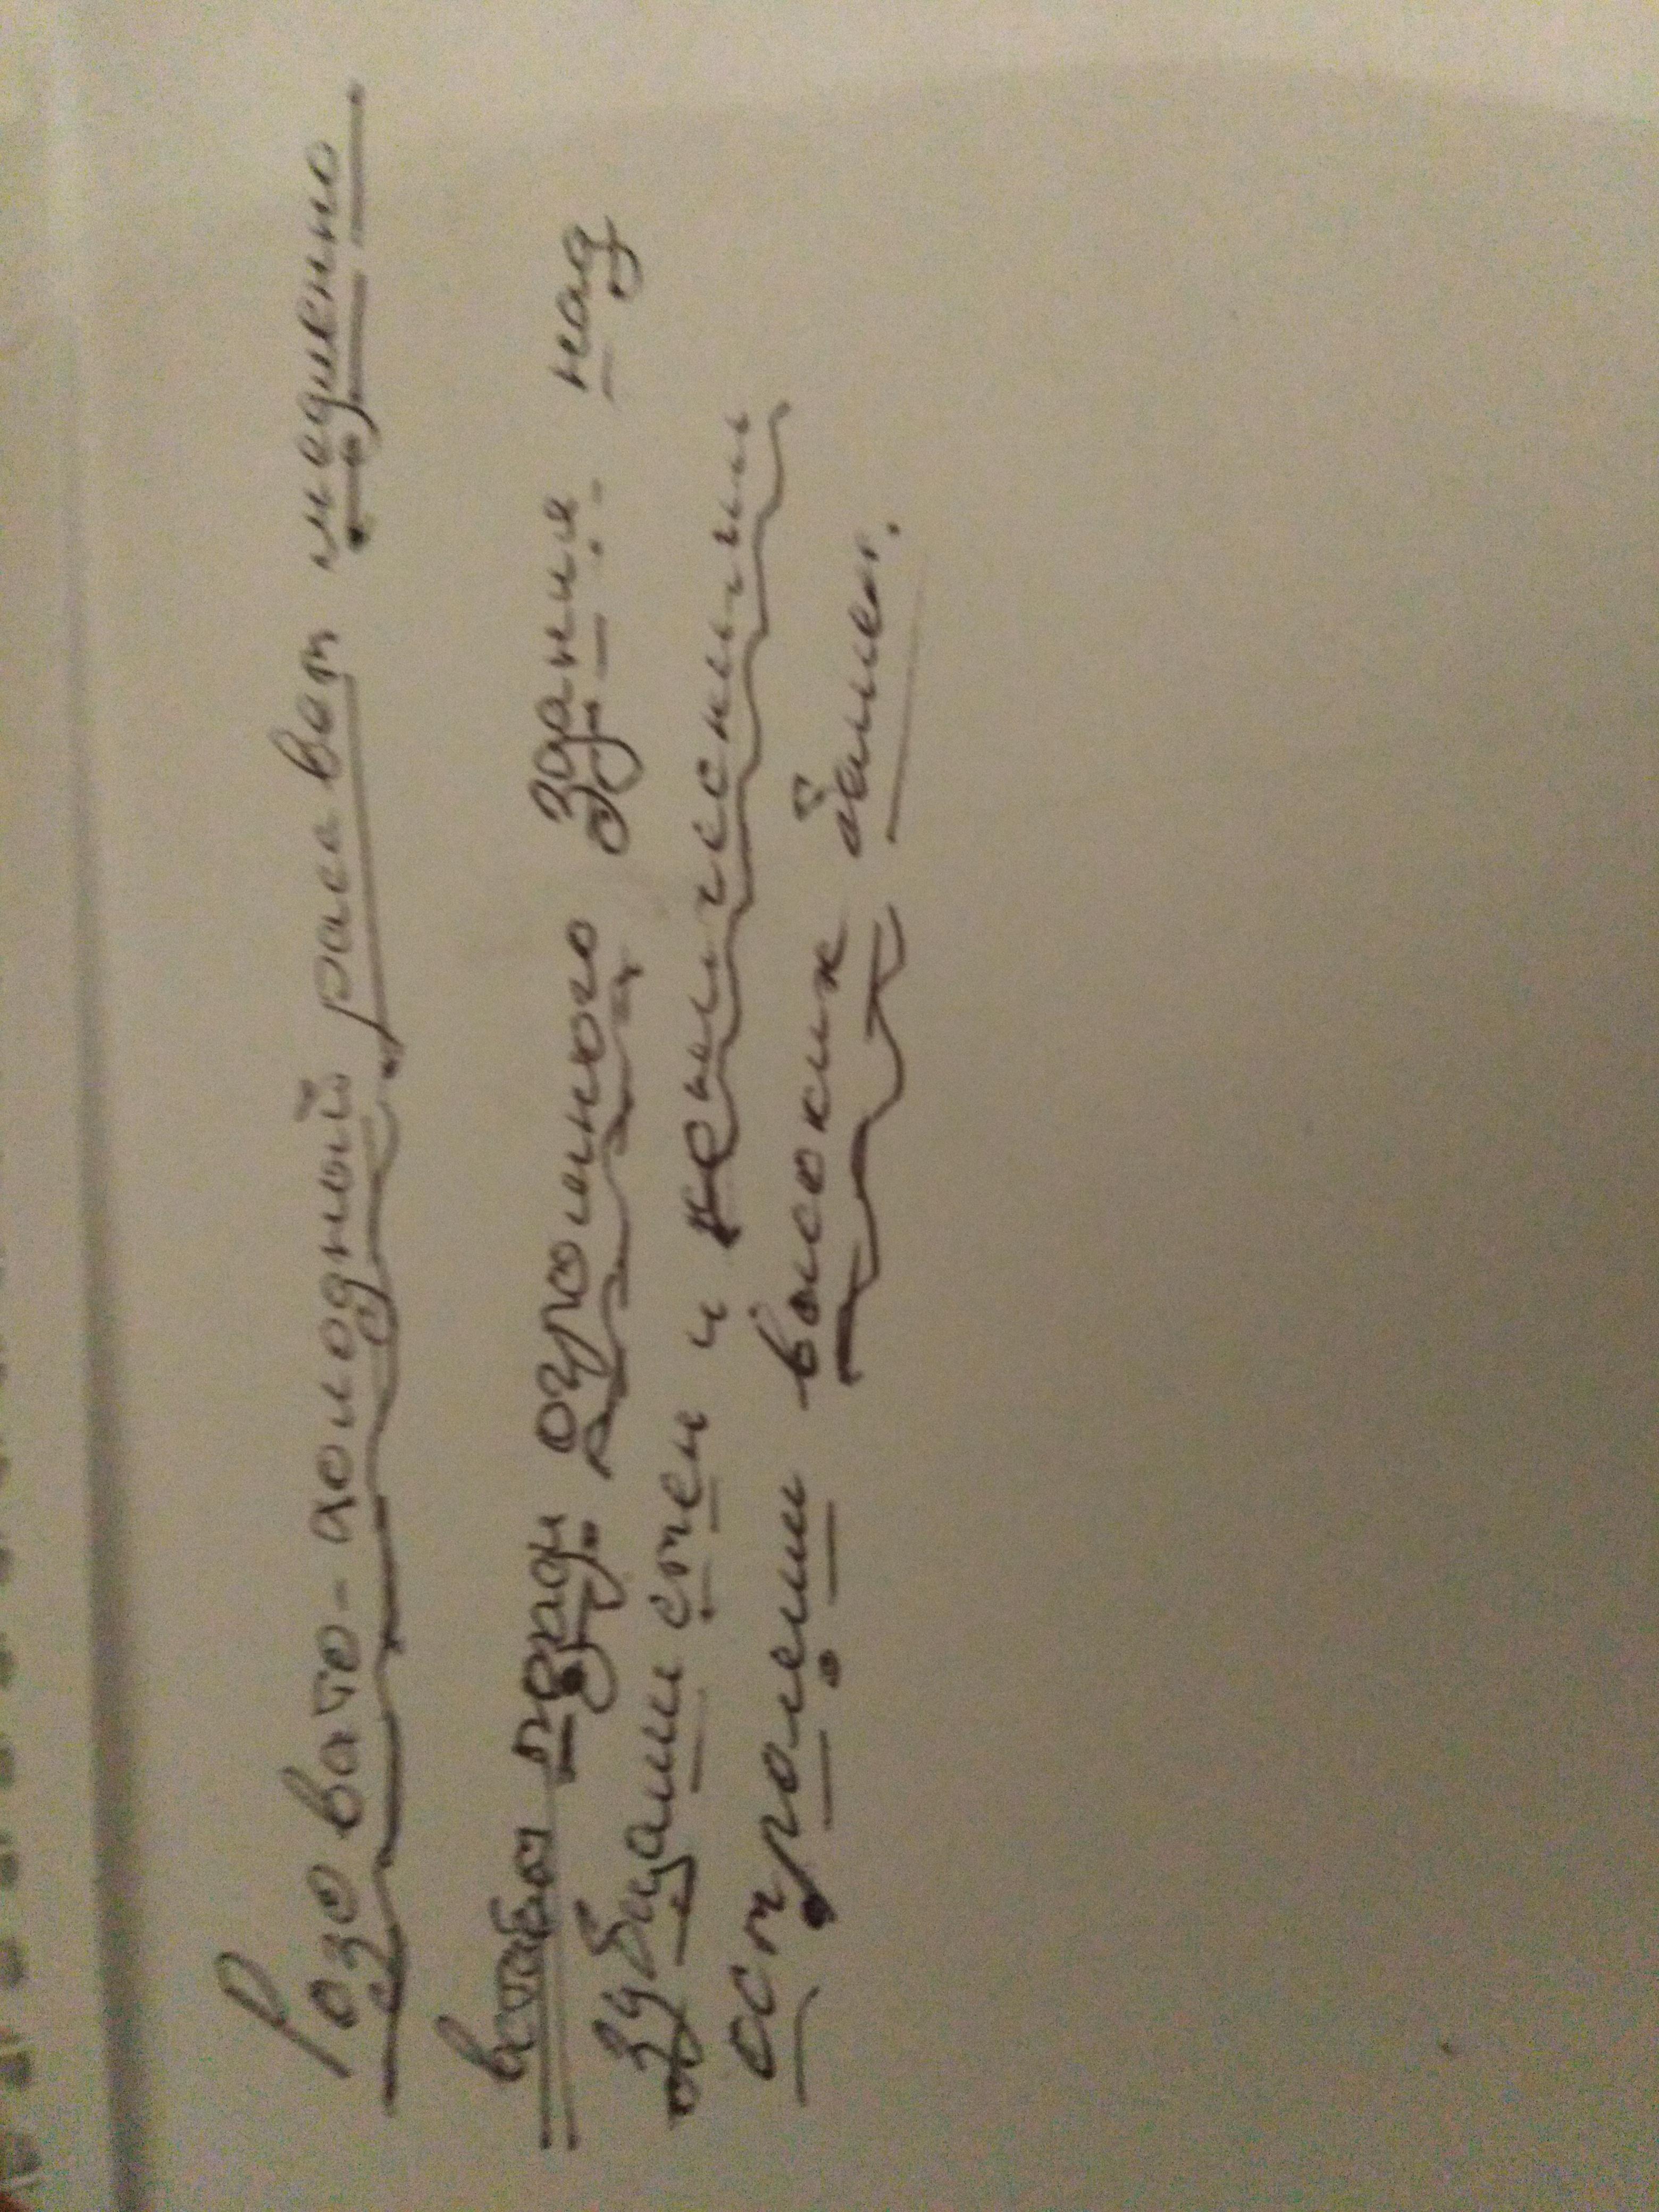 Розовато-холодный рассвет медленно
вставал позади огромного здания над
зубцами стен и немыслимыми
остролепи высоких башен.